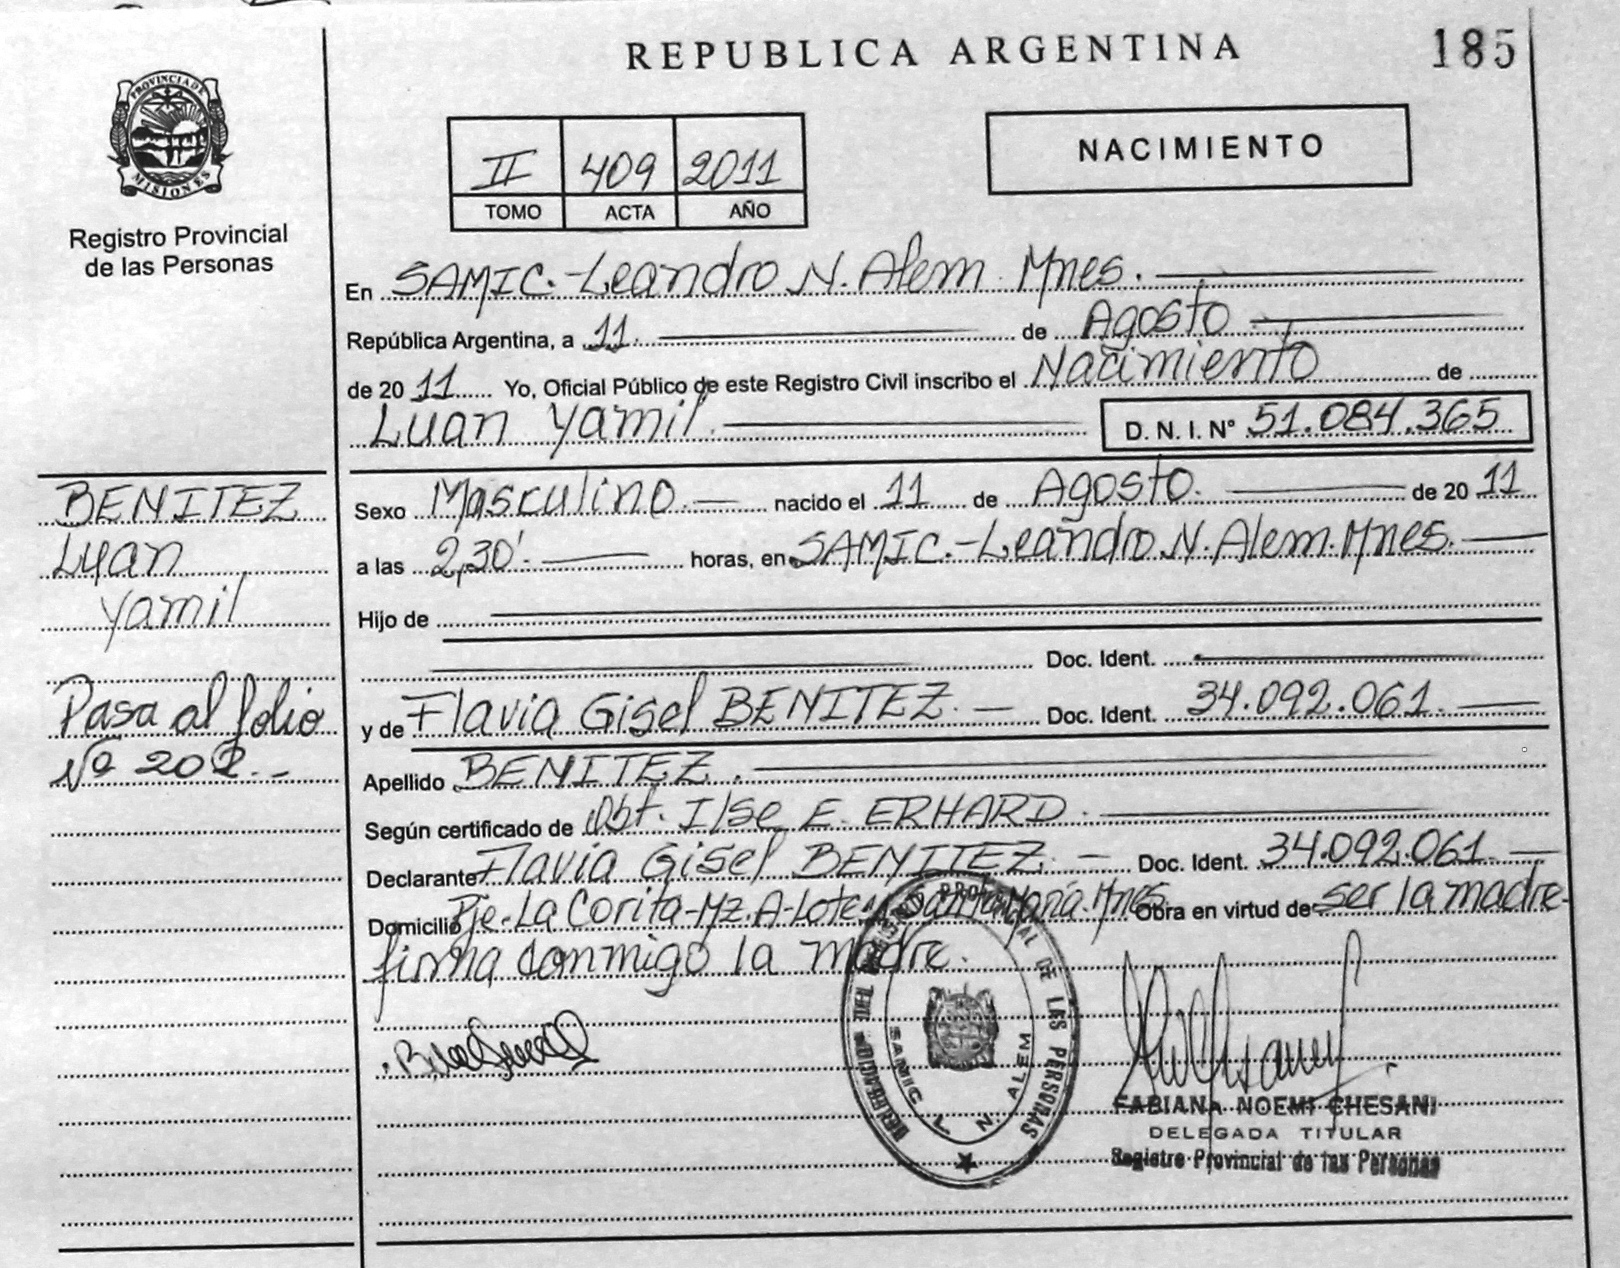 REPUBLICA ARGENTINA
185
PROVINCIA DE
MISIONES
Registro Provincial
de las Personas
II 409 2011
TOMO ACTA AÑO
NACIMIENTO
En SAMIC.-Leandro N. Alem. Mnes.
República Argentina, a 11. de Agosto
de 20 11 Yo, Oficial Público de este Registro Civil inscribo el Nacimiento de
Luan Yamil. D. N. I. N° 51.084.365
BENITEZ
Luan
Yamil
Pasa al folio
Nº 202.-
Sexo Masculino. nacido el 11 de Agosto. de 20 11
a las 2,30'. horas, en SAMIC.-Leandro N. Alem. Mnes.
Hijo de
Doc. Ident.
y de Flavia Gisel BENITEZ. Doc. Ident. 34.092.061.
Apellido BENITEZ.
Según certificado de Obt. Ilse E. ERHARD.
Declarante Flavia Gisel BENITEZ. Doc. Ident. 34.092.061.
Domicilio Pje. La Corita-Mz. A-Lote Santa María. Mnes. Obra en virtud de ser la madre-
firma conmigo la madre.
DE LAS PERSONAS
SAMIC L. N. ALEM
FABIANA NOEMI CHESANI
DELEGADA TITULAR
Registro Provincial de las Personas